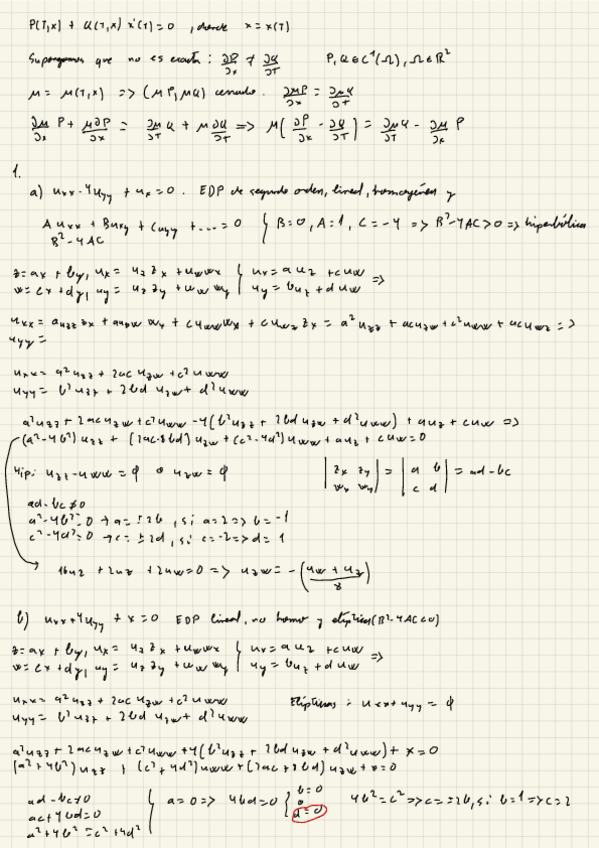 P(T,x) + Q(T,x) x'(T) = 0 , donde x = x(T)
Supongamos que no es exacta : ∂P/∂x ≠ ∂Q/∂T P, Q ∈ C¹(Ω), Ω ∈ ℝ²
μ = μ(T,x) => (μP, μQ) cerrado. ∂μP/∂x = ∂μQ/∂T
∂μ/∂x P + μ∂P/∂x = ∂μ/∂T Q + μ ∂Q/∂T => μ(∂P/∂x - ∂Q/∂T) = ∂μ/∂T Q - ∂μ/∂x P
1.
a) u_xx - 4u_yy + u_x = 0 . EDP de segundo orden, lineal, homogénea y
A u_xx + B u_xy + C u_yy + .... = 0 { B = 0, A = 1, C = -4 => B² - 4AC > 0 => hiperbólica
B² - 4AC
z = ax + by, u_x = u_z z_x + u_w w_x { u_x = a u_z + c u_w =>
w = cx + dy, u_y = u_z z_y + u_w w_y { u_y = b u_z + d u_w
u_xx = a u_zz z_x + a u_zw w_x + c u_ww w_x + c u_wz z_x = a² u_zz + ac u_zw + c² u_ww + ac u_wz =>
u_yy =
u_xx = a² u_zz + 2ac u_zw + c² u_ww
u_yy = b² u_zz + 2bd u_zw + d² u_ww
a² u_zz + 2ac u_zw + c² u_ww - 4(b² u_zz + 2bd u_zw + d² u_ww) + a u_z + c u_w =>
(a² - 4b²) u_zz + (2ac - 8bd) u_zw + (c² - 4d²) u_ww + a u_z + c u_w = 0
Hip: u_zz - u_ww = ϕ o u_zw = ϕ | z_x z_y ; w_x w_y | = | a b ; c d | = ad - bc
ad - bc ≠ 0
a² - 4b² = 0 → a = ± 2b , si a = 2 => b = -1
c² - 4d² = 0 → c = ± 2d , si c = -2 => d = 1
u_z + 2u_w = 0 => u_zw = - (u_w + u_z / 8)
b) u_xx + 4u_yy + x = 0 EDP lineal, no homo y elíptica (B² - 4AC < 0)
z = ax + by, u_x = u_z z_x + u_w w_x { u_x = a u_z + c u_w =>
w = cx + dy, u_y = u_z z_y + u_w w_y { u_y = b u_z + d u_w
u_xx = a² u_zz + 2ac u_zw + c² u_ww Elípticas : u_xx + u_yy = ϕ
u_yy = b² u_zz + 2bd u_zw + d² u_ww
a² u_zz + 2ac u_zw + c² u_ww + 4(b² u_zz + 2bd u_zw + d² u_ww) + x = 0
(a² + 4b²) u_zz + (c² + 4d²) u_ww + (2ac + 8bd) u_zw + x = 0
ad - bc ≠ 0 { a = 0 => 4bd = 0 { b = 0 o d = 0 4b² = c² => c = ±2b, si b = 1 => c = 2
ac + 4bd = 0
a² + 4b² = c² + 4d²